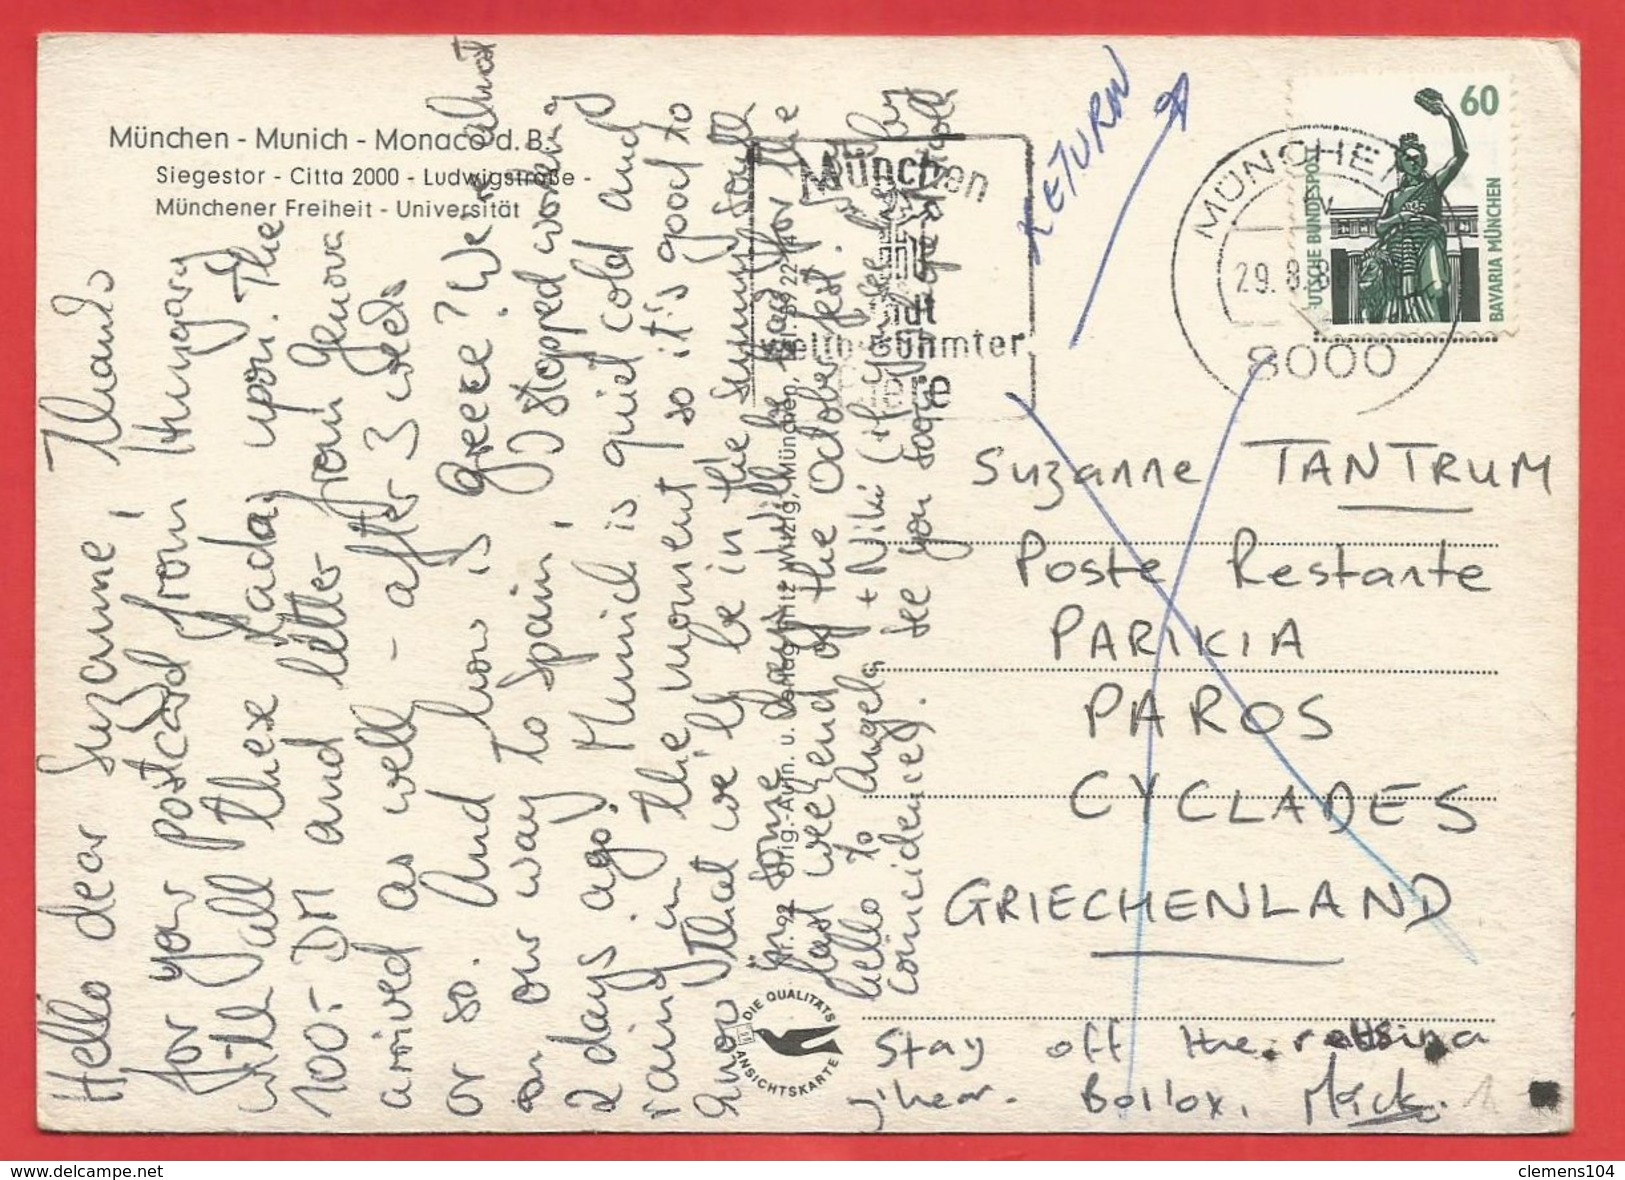 München - Munich - Monaco d. B.
Siegestor - Citta 2000 - Ludwigstraße -
Münchener Freiheit - Universität
Hello dear Suzanne, Thanks
for your postcard from Hungary
with all these Laday upon. The
100.- DM and letter from Genova
arrived as well - after 3 weeks
or so. And how is Greece? We're almost
on our way to Spain, I stopped working
2 days ago! Munich is quiet cold and
rainy in the moment so it's good to
know that we'll be in the sunny south
in some days. will be back for the
last weekend of the Octoberfest. Say
hello to Angela + Niki (if you see her by
coincidence). See you soon love
Nr. 92 Orig.-Aufn. u. Verlag Fritz Witzig, München, Tel. 59 22
DIE QUALITÄTS
ANSICHTSKARTE
München
Stadt
weltberühmter
Biere
RETURN
MÜNCHEN
29.8.8
8000
60
DEUTSCHE BUNDESPOST
BAVARIA MÜNCHEN
Suzanne TANTRUM
Poste Restante
PARIKIA
PAROS
CYCLADES
GRIECHENLAND
Stay off the retsina
j'hear. Bollox, Mick.
clemens104